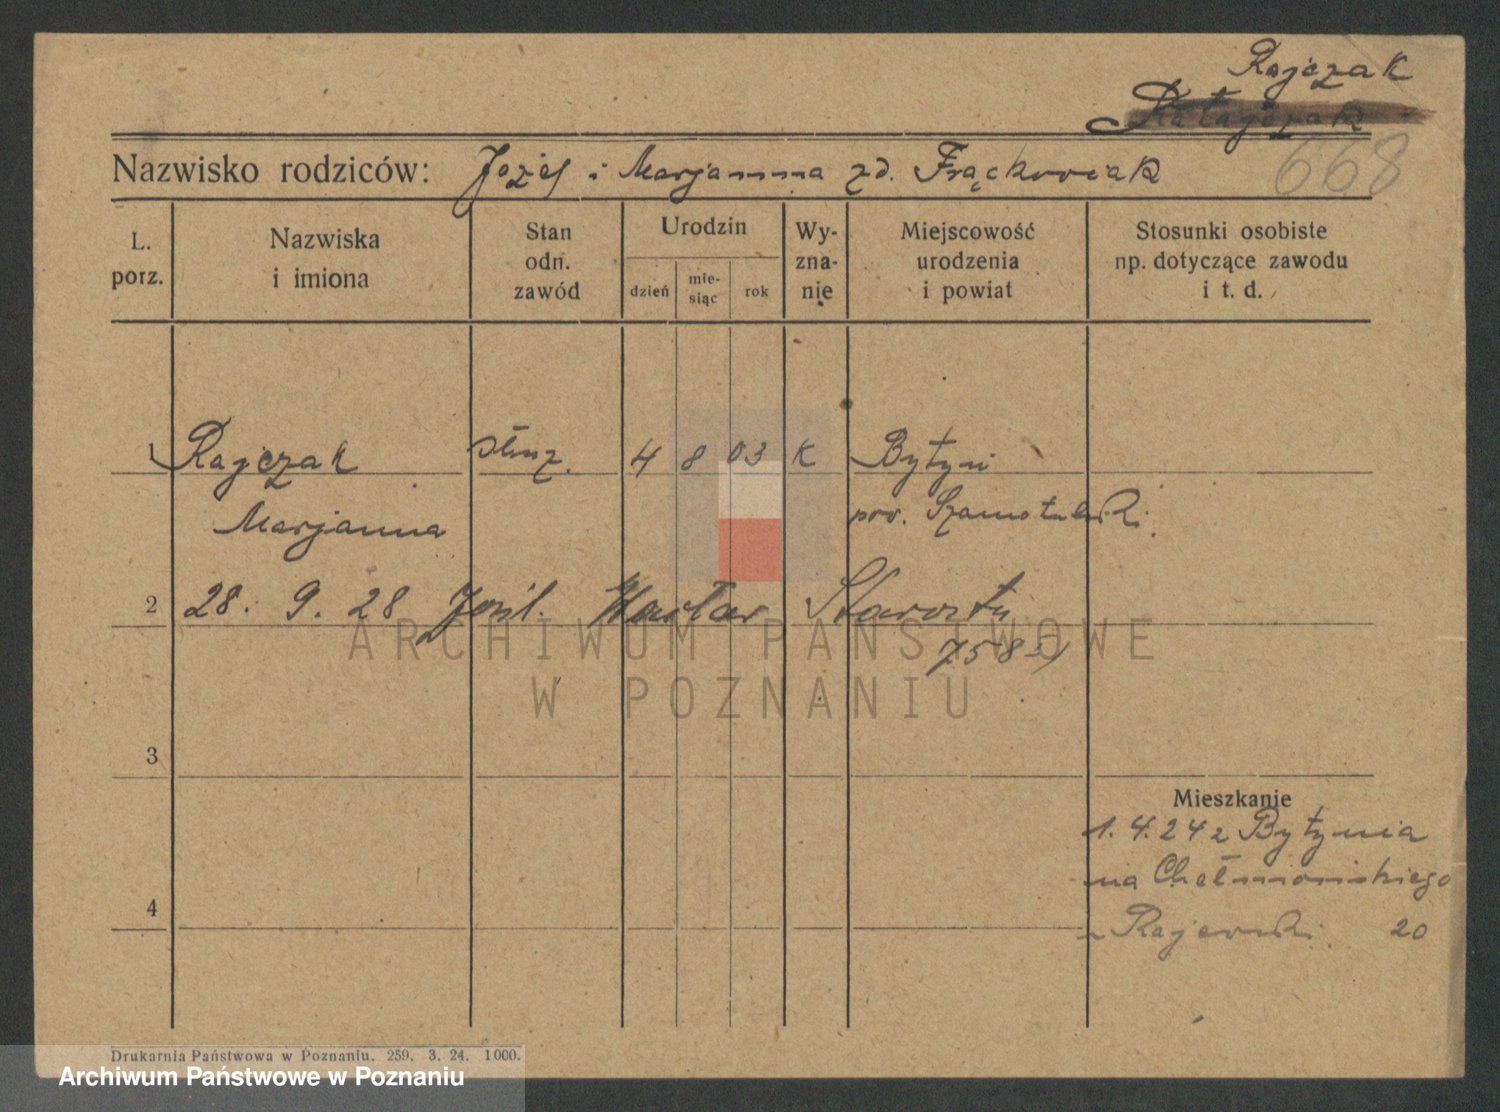 Rajczak
Ratajczak
Nazwisko rodziców: Józef i Marjanna zd. Frąckowiak 668
L. porz. Nazwiska i imiona Stan odn. zawód Urodzin dzień mie-siąc rok Wy-zna-nie Miejscowość urodzenia i powiat Stosunki osobiste np. dotyczące zawodu i t. d.
1 Rajczak służ. 4 8 03 K Bytyń
Marjanna pow. Szamotulski.
2 28. 9. 28 Wacław Starosty
758
ARCHIWUM PAŃSTWOWE
W POZNANIU
3
Mieszkanie
1. 4. 24 z Bytynia
na Chełmońskiego
4
u Rajewski. 20
Drukarnia Państwowa w Poznaniu. 259. 3. 24. 1000.
Archiwum Państwowe w Poznaniu